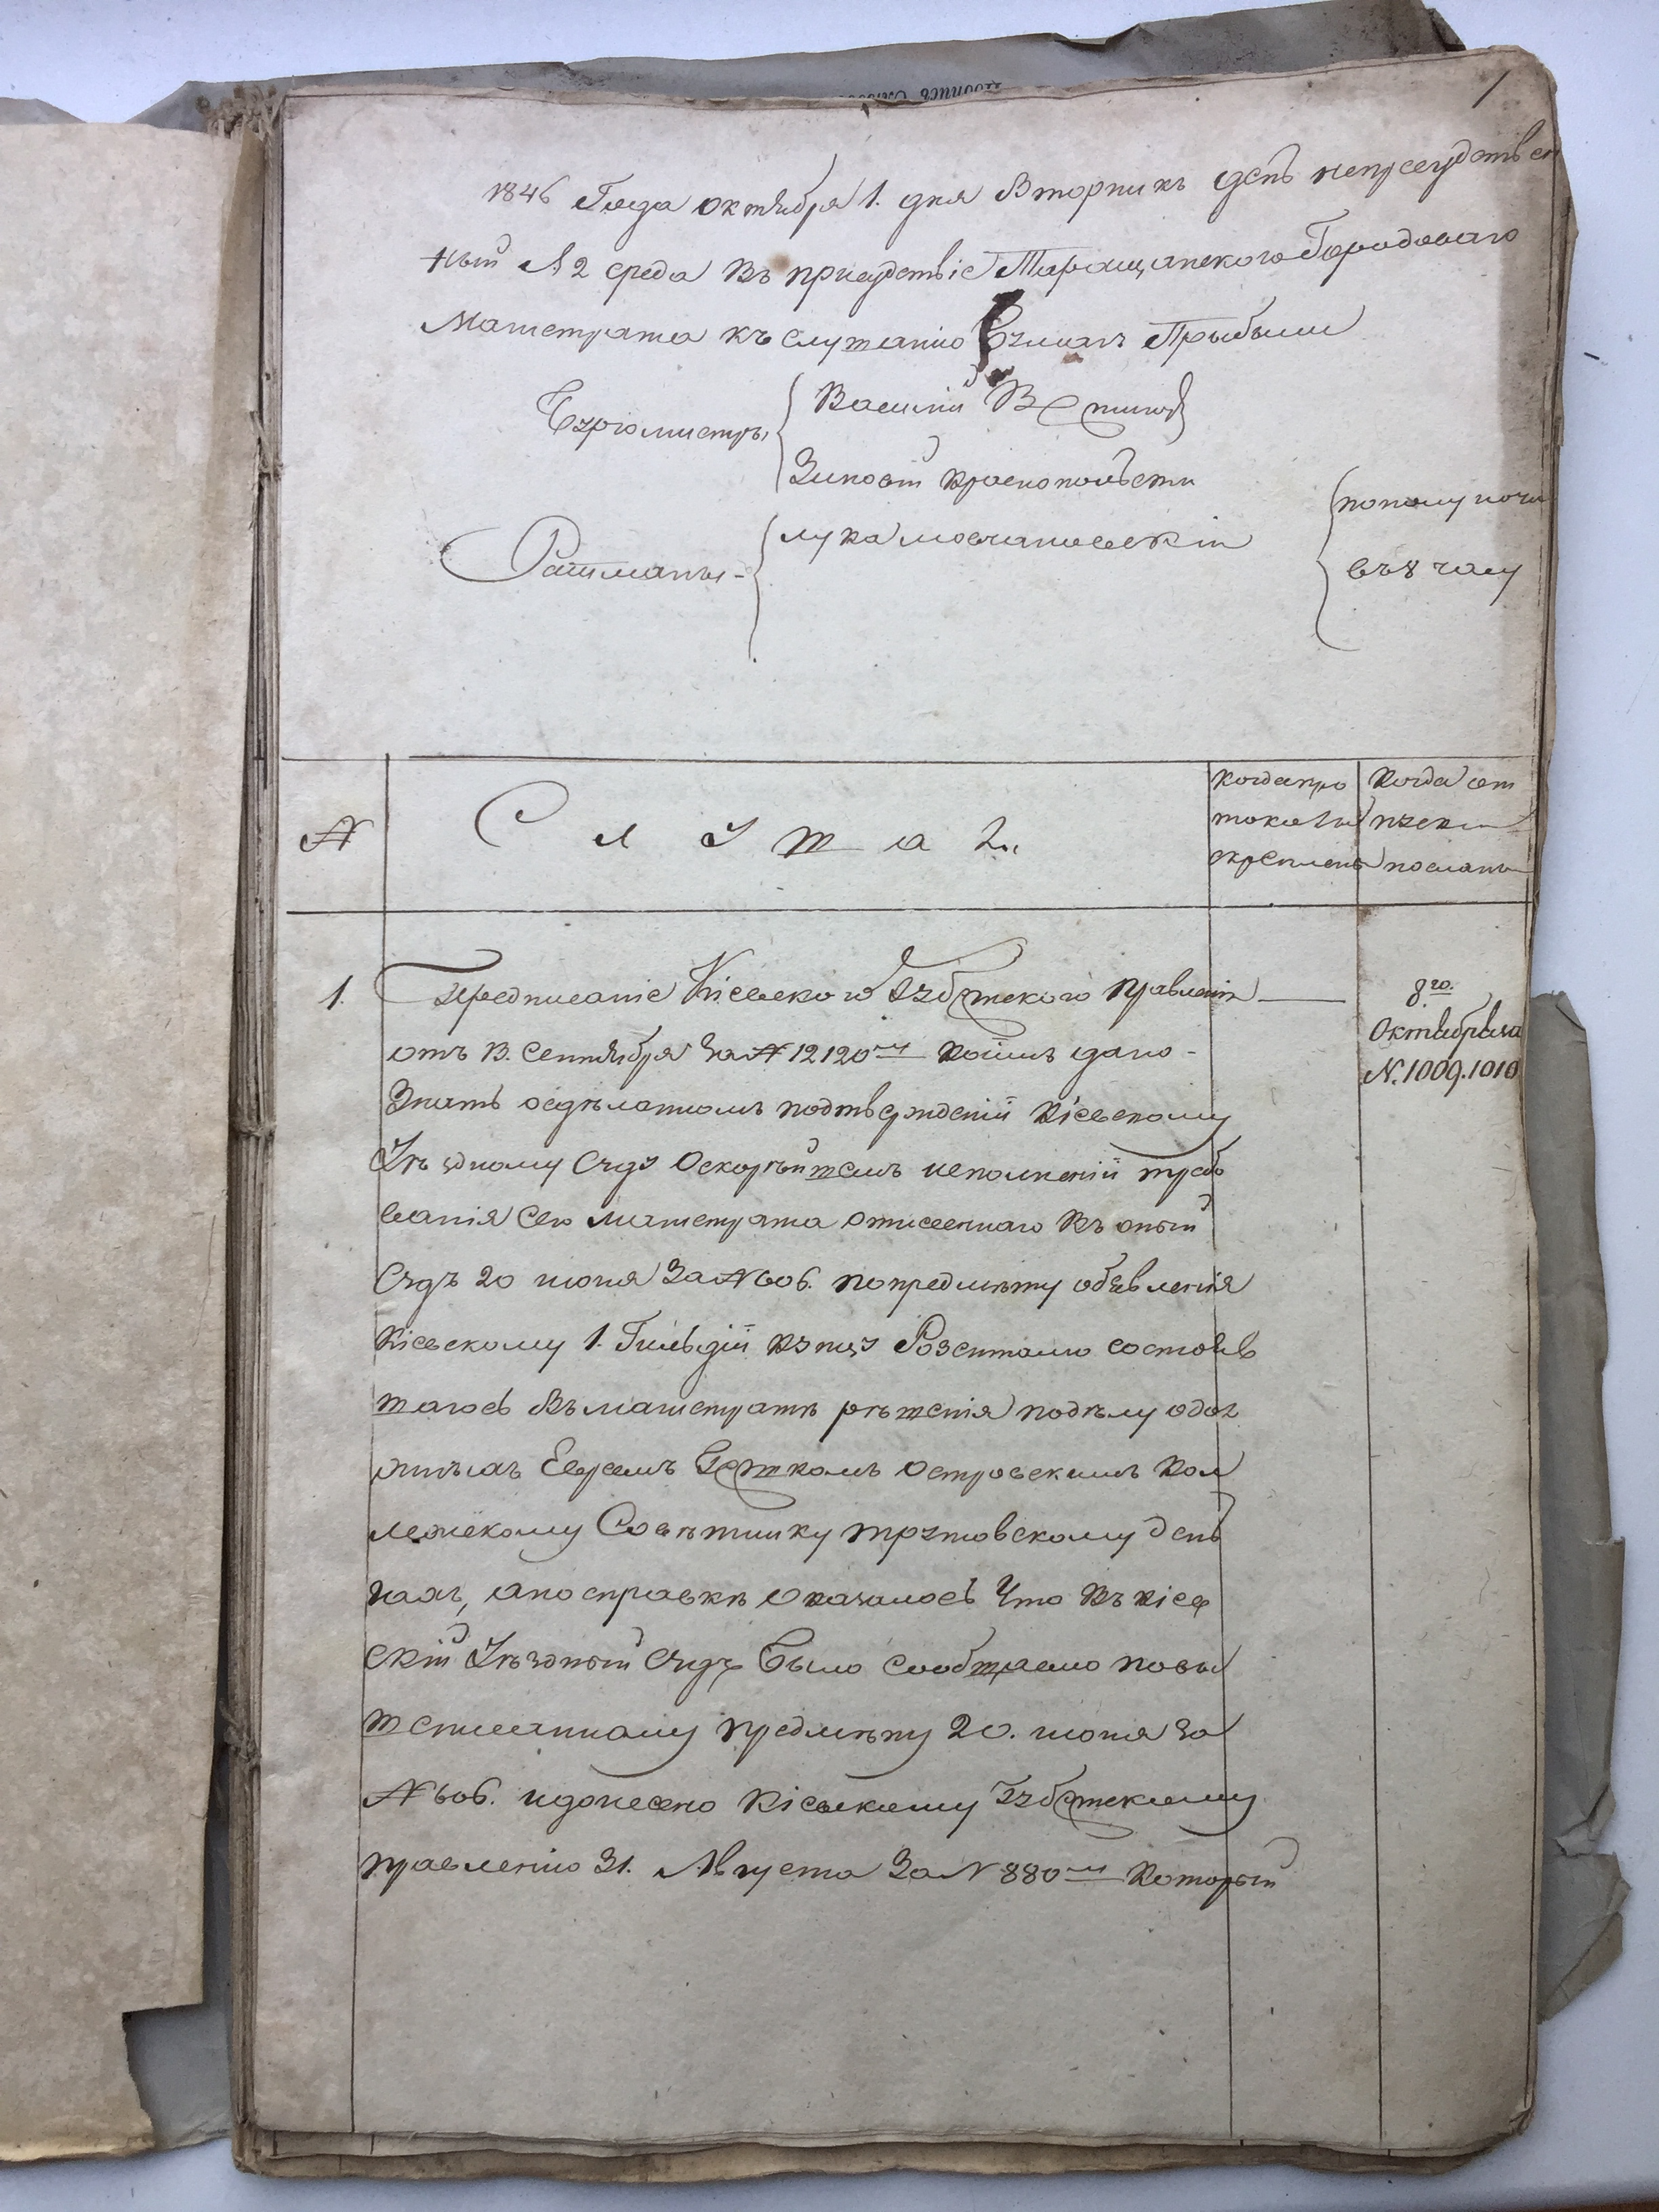 1
1846 Года октября 1. дня Вторникъ день неприсудствен
ный А 2 среда Въ присудствіе Таращанского Городоваго
Магистрата къ слушанію Бумагъ Прыбыли
Бургомистръ,
Василій
Зиновій Краснопольскій
Ратманы-
лука мовчановскій
пополу ночи
въ 8 часу
№
Слушали
Когда про
токолъ
скрепленъ
Когда от
пуски
посланы
1.
Предписаніе Кіевского Губернского правленія
8.го
Октября за
N. 1009. 1010
отъ 13. Сентября за № 12120м коимъ дано-
Знать осделанномъ подтвержденій Кіевскому
Уѣздному Суду Оскорѣйшемъ исполненій требо
ванія сего магистрата отнесеннаго Въ оный
Судъ 20 июня За № 606. попредмѣту объявленія
Кіевскому 1. Гильдій купцу Розенталю состояв
шагось Въ магистратѣ рѣшенія подѣлу одол
жныхъ Евреемъ Островскимъ Кол
лежскому Совѣтнику трутовскому день
гахъ, апо справкѣ оказалось Что Въ кіев
скій Уѣздный Судъ было сообщаемо повы
шеписанному предмѣту 20. июня за
№ 606. идонесено Кіевскому Губернскому
правленію 31. Августа За N 880м Который